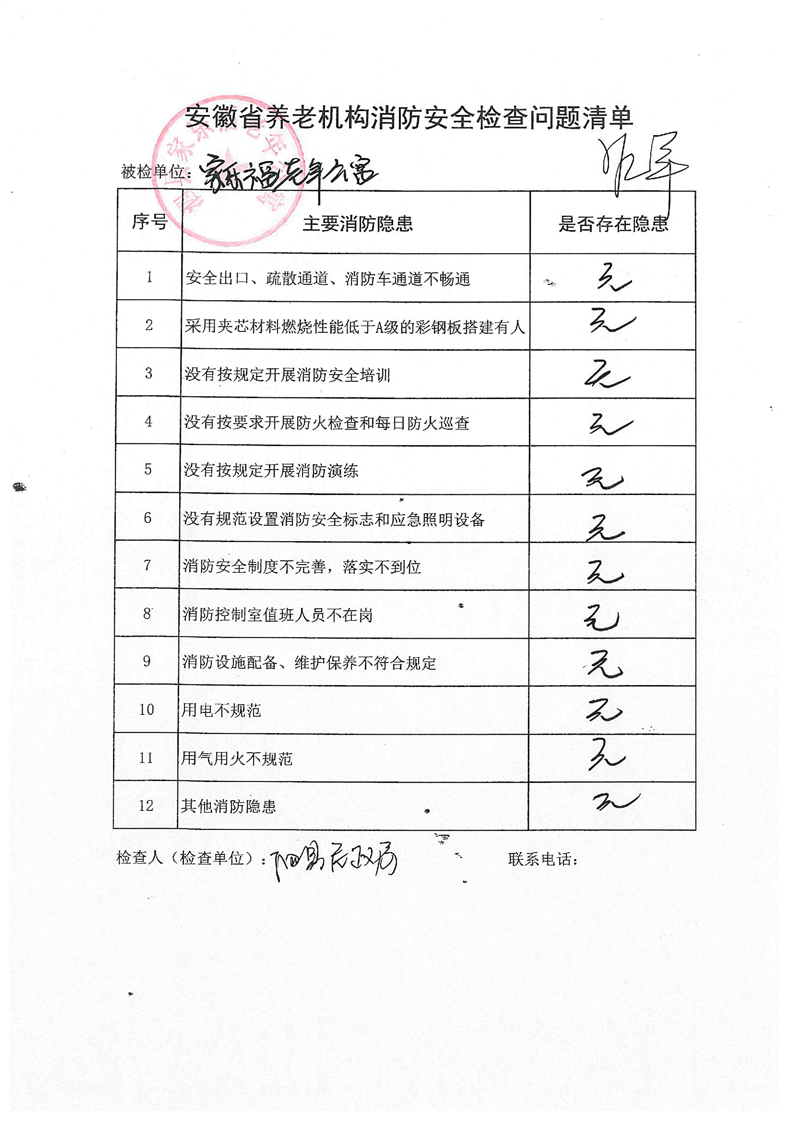 安徽省养老机构消防安全检查问题清单
被检单位：家乐福老年公寓
序号 主要消防隐患 是否存在隐患
1 安全出口、疏散通道、消防车通道不畅通 无
2 采用夹芯材料燃烧性能低于A级的彩钢板搭建有人 无
3 没有按规定开展消防安全培训 无
4 没有按要求开展防火检查和每日防火巡查 无
5 没有按规定开展消防演练 无
6 没有规范设置消防安全标志和应急照明设备 无
7 消防安全制度不完善，落实不到位 无
8 消防控制室值班人员不在岗 无
9 消防设施配备、维护保养不符合规定 无
10 用电不规范 无
11 用气用火不规范 无
12 其他消防隐患 无
检查人（检查单位）：泗县民政局
联系电话：